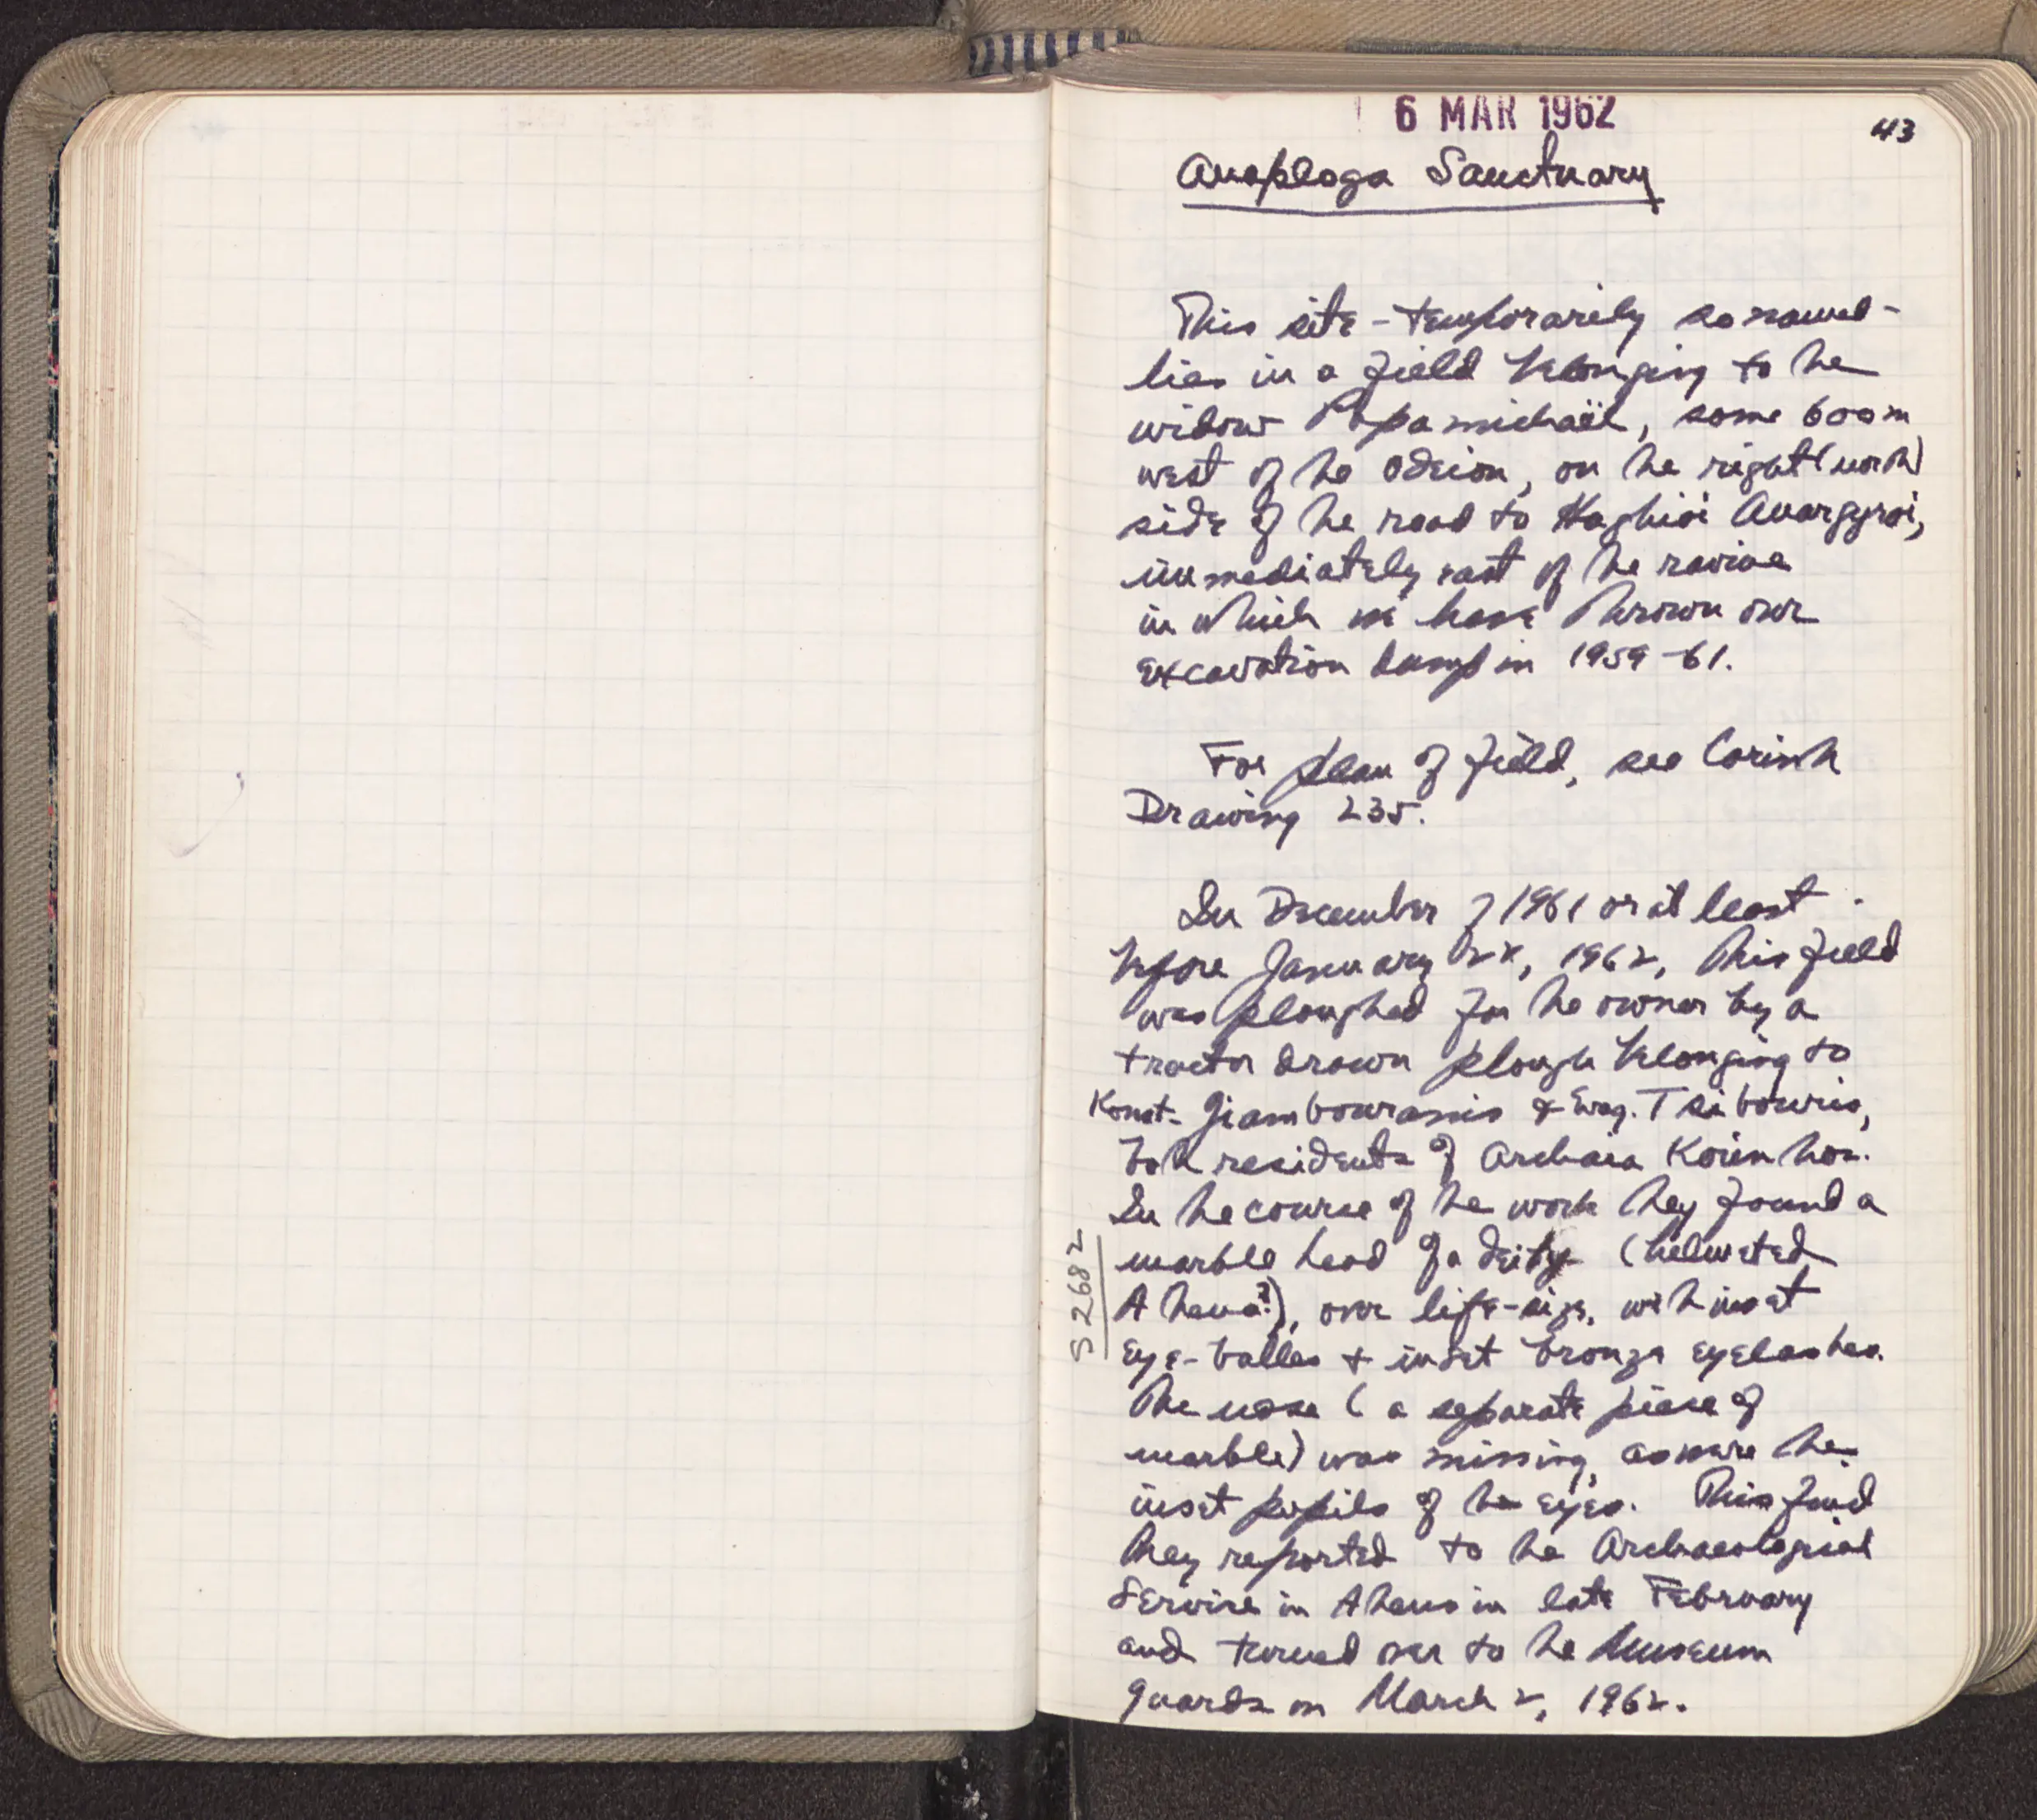 6 MAR 1962
43
Anaploga Sanctuary
This site - temporarily so named -
lies in a field belonging to the
widow Papamichaël, some 600 m
west of the Odeion, on the right (north)
side of the road to Haghioi Anargyroi,
immediately east of the ravine
in which we have thrown our
excavation dump in 1959-61.
For plan of field, see Corinth
Drawing 235.
In December of 1961 or at least
before January 1962, this field
was ploughed for the owner by a
tractor drawn plough belonging to
Konst. Giambouranis & Evag. Tsibouris,
both residents of Archaia Korinthos.
In the course of the work they found a
marble head of a deity (helmeted
Athena?), over life-size, with inset
S 2682
eye-balles & inset bronze eyelashes.
The nose (a separate piece of
marble) was missing, as were the
inset pupils of the eyes. This find
they reported to the Archaeological
Service in Athens in late February
and turned over to the Museum
guards on March 2, 1962.